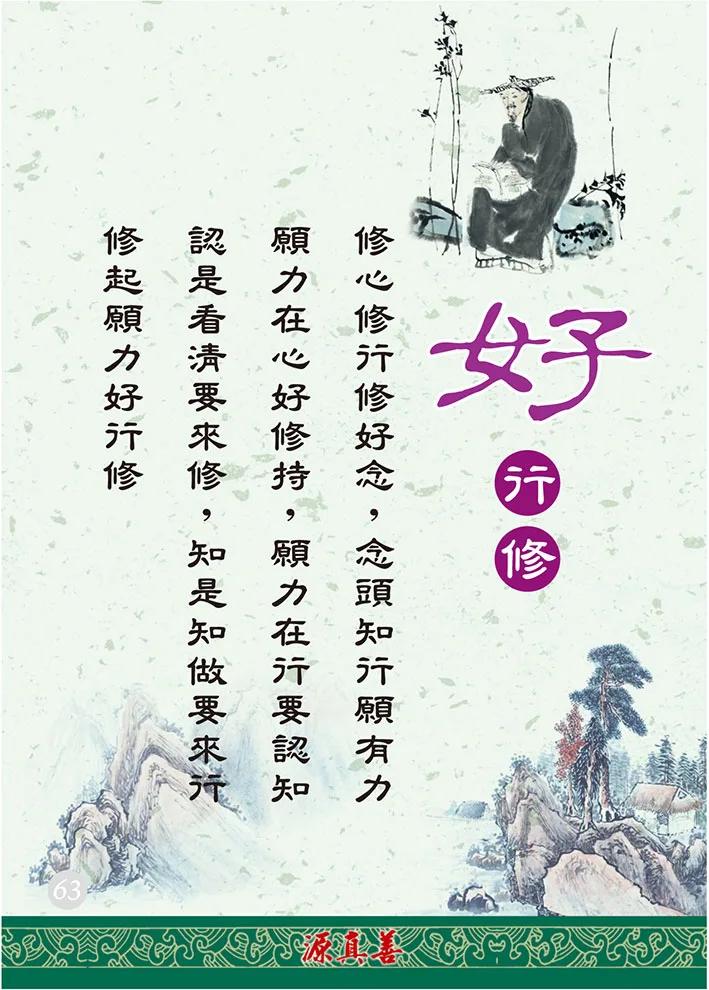 好
行
修
修心修行修好念，念頭知行願有力
願力在心好修持，願力在行要認知
認是看清要來修，知是知做要來行
修起願力好行修
63
源真善